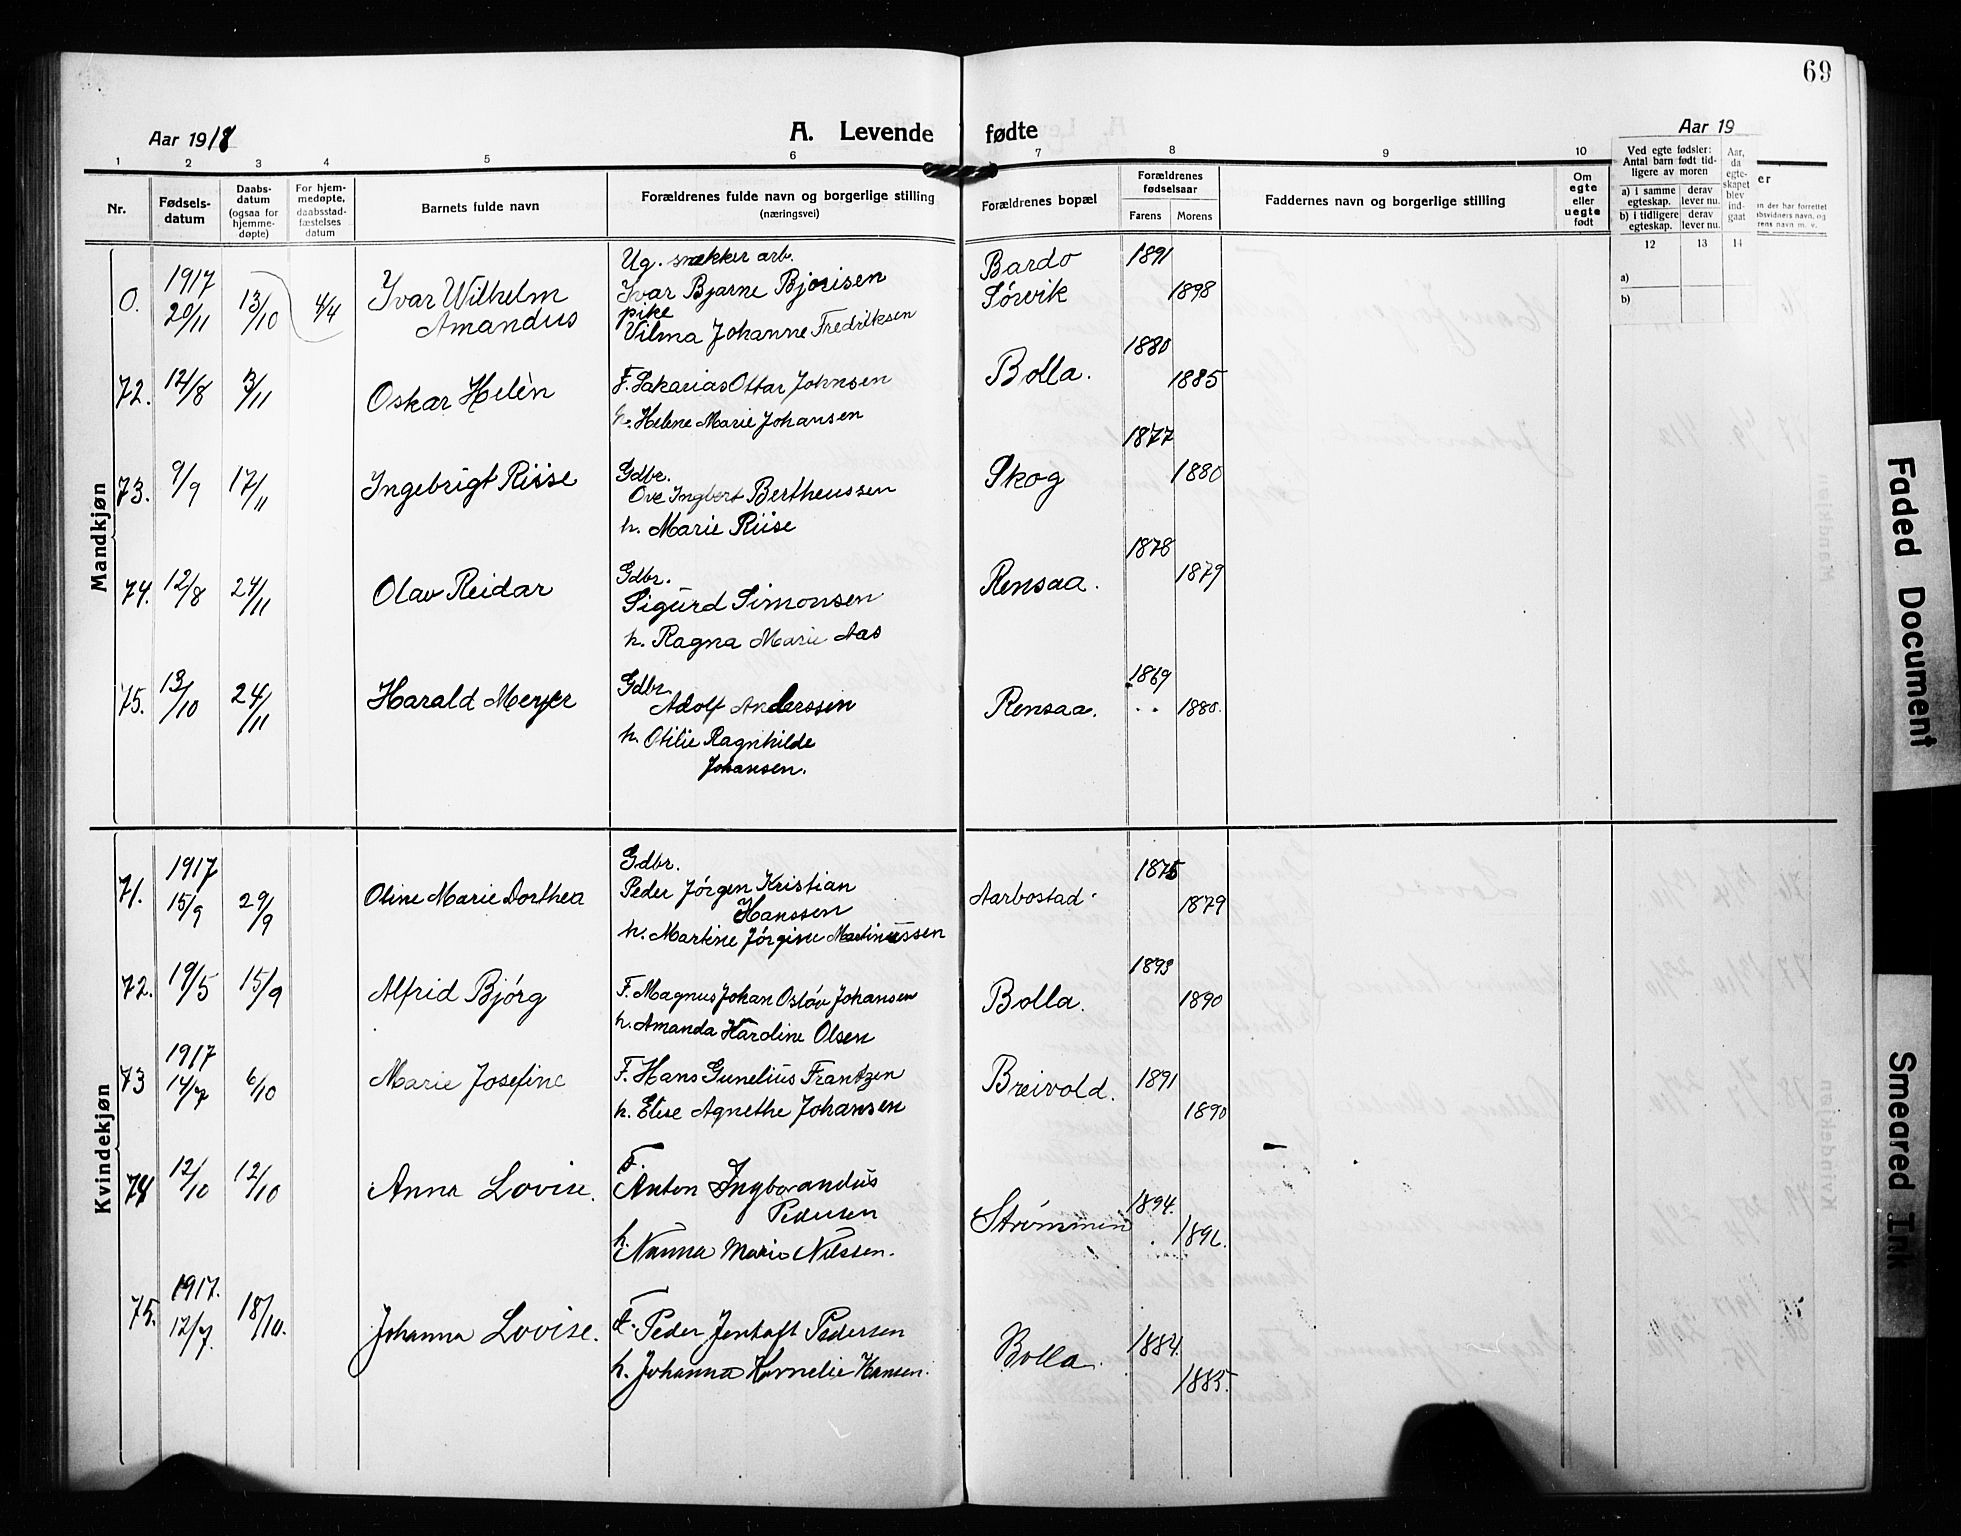 69
Aar 1918
A. Levende fødte
Aar 19
1 2 3 4 5 6 7 8 9 10
Nr.
Fødsels-
datum
Daabs-
datum
(ogsaa for
hjemme-
døpte)
For hjem-
medøpte,
daabsstad-
fæstelses
datum
Barnets fulde navn
Forældrenes fulde navn og borgerlige stilling
(næringsvei)
Forældrenes bopæl
Forældrenes
fødselsaar
Farens Morens
Faddernes navn og borgerlige stilling
Om
egte
eller
uegte
født
Ved egte fødsler:
Antal barn født tid-
ligere av moren
a) i samme
egteskap.
derav
lever nu.
b) i tidligere
egteskap.
derav
lever nu.
Aar,
da
egte-
skapet
blev
ind-
gaat
12 13 14
a)
b)
Mandkjøn
0. 1917 20/11 13/10 4/4 Ivar Wilhelm
Amandus
Ug. snekker arb.
Ivar Bjarne Bjorisen
pike
Vilma Johanne Fredriksen
Bardo 1891
Sørvik 1898
72. 12/8 3/11 Oskar Helèn
F. Sakarias Ottar Johnsen
h. Helene Marie Johansen
Bolla. 1880 1885
73. 9/9 17/11 Ingebrigt Riise
Gdbr.
Ove Ingbert Bertheussen
h. Marie Riise
Skog 1877 1880
74. 12/8 24/11 Olav Reidar
Gdbr.
Sigurd Simonsen
h. Ragna Marie Aas
Rensaa. 1878 1879
75. 13/10 24/11 Harald Meyer
Gdbr.
Adolf Anderssen
h. Otilie Ragnhilde
Johansen.
Rensaa. 1869 1880.
Kvindekjøn
71. 1917 15/9 29/9 Oline Marie Dorthea
Gdbr.
Peder Jørgen Kristian
Hanssen
h. Martine Jørgine Martinussen
Aarbostad 1875 1879
72. 19/5 15/9 Alfrid Bjørg
F. Magnus Johan Osløv Johansen
h. Amanda Hardine Olsen
Bolla. 1893 1890
73 1917 14/7 6/10 Marie Josefine
F. Hans Gunelius Frantzen
h. Elise Agnethe Johansen
Breivold. 1891 1890
74 12/10 12/10 Anna Lovise.
F.
Anton Ingborandus
Pedersen
h. Nanna Marie Nilssen.
Strømmen 1894. 1896.
75. 1917. 12/7. 18/10. Johanna Lovise.
F. Peder Jentoft Pedersen
h. Johanna Kornelie Hansen.
Bolla. 1884. 1885.
Faded Document
Smeared Ink